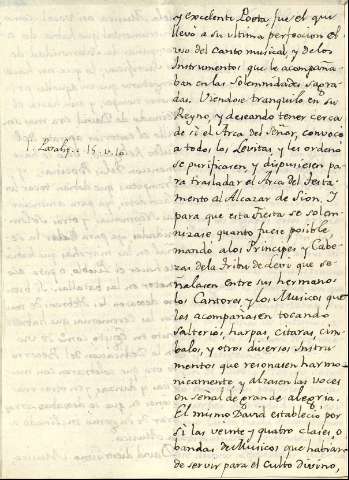 y excelente Poeta, fue el que
llevó a su ultima perfeccion el
uso del Canto musical, y de los
Instrumentos que le acompaña-
ban en las Solemnidades sagra-
das. Viendose tranquilo en su
Reyno, y deseando tener cerca
de sí el Arca del Señor, convocó
a todos los Levitas y les ordenó
1. Paralip. 15. v. 16
se purificasen, y dispusiesen pa-
ra trasladar el Arca del Testa-
mento al Alcazar de Sion. Y
para que esta Fiesta se solem-
nizase quanto fuese posible,
mandó a los Principes y Cabe-
zas de la Tribu de Levi que se-
ñalasen entre sus hermanos
los Cantores y los Musicos que
los acompañasen tocando
salterios, harpas, citaras, cim-
balos, y otros diversos Instru-
mentos que resonasen harmo-
nicamente y alzasen las voces
en señal de grande alegria.
El mismo David estableció por
sí las veinte y quatro clases, o
bandas de Musicos que habian
de servir para el Culto Divino,